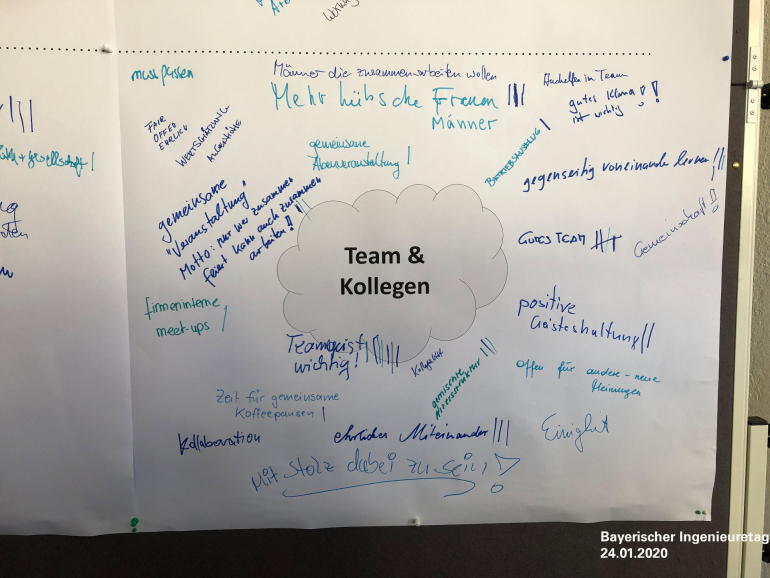 muss passen
Männer die zusammenarbeiten wollen
Mehr hübsche Frauen
Männer
Aushelfen im Team
gutes Klima
ist wichtig
FAIR
OFFEN
EHRLICH
WERTSCHÄTZUNG
AUGENHÖHE
gemeinsame
Abendveranstaltung !
BETRIEBSAUSFLUG
gegenseitig voneinander lernen
gemeinsame
"Veranstaltung"
Motto: nur wer zusammen
feiert kann auch zusammen
arbeiten!
GUTES TEAM
Gemeinschaft!
Team &
Kollegen
firmeninterne
meet-ups
positive
Geisteshaltung
Teamgeist
wichtig!
Kollegialität
gemischte
Altersstruktur
offen für andere - neue
Meinungen
Zeit für gemeinsame
Kaffeepausen
Kollaboration
ehrliches Miteinander
Einigkeit
Mit Stolz dabei zu sein!
Bayerischer Ingenieuretag
24.01.2020